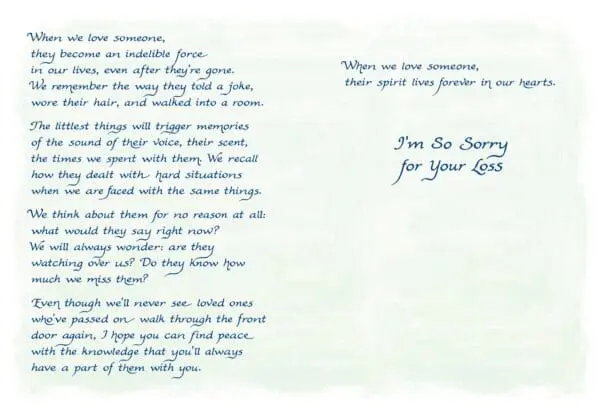 When we love someone,
they become an indelible force
in our lives, even after they're gone.
We remember the way they told a joke,
wore their hair, and walked into a room.
The littlest things will trigger memories
of the sound of their voice, their scent,
the times we spent with them. We recall
how they dealt with hard situations
when we are faced with the same things.
We think about them for no reason at all:
what would they say right now?
We will always wonder: are they
watching over us? Do they know how
much we miss them?
Even though we'll never see loved ones
who've passed on walk through the front
door again, I hope you can find peace
with the knowledge that you'll always
have a part of them with you.
When we love someone,
their spirit lives forever in our hearts.
I'm So Sorry
for Your Loss